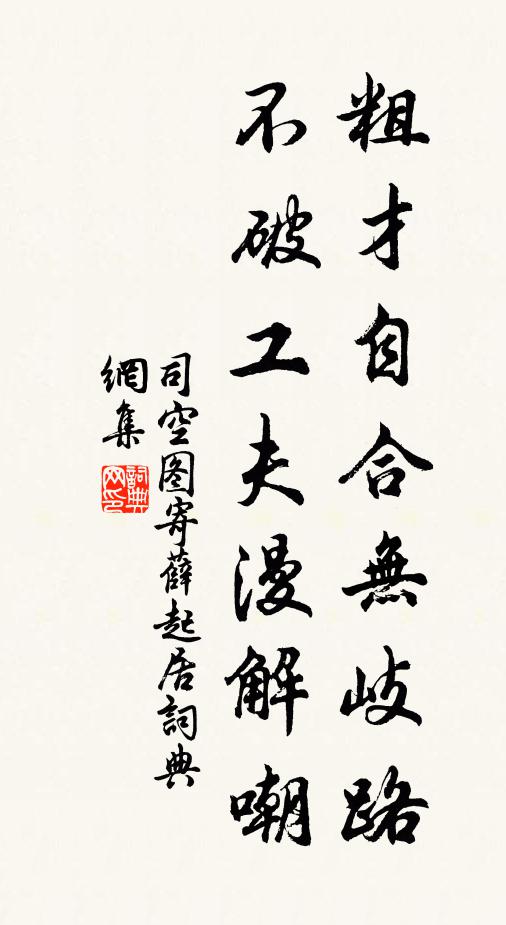 粗才自合無岐路
不破工夫漫解嘲
司空图寄薛起居詞典
網集
詞典
网印